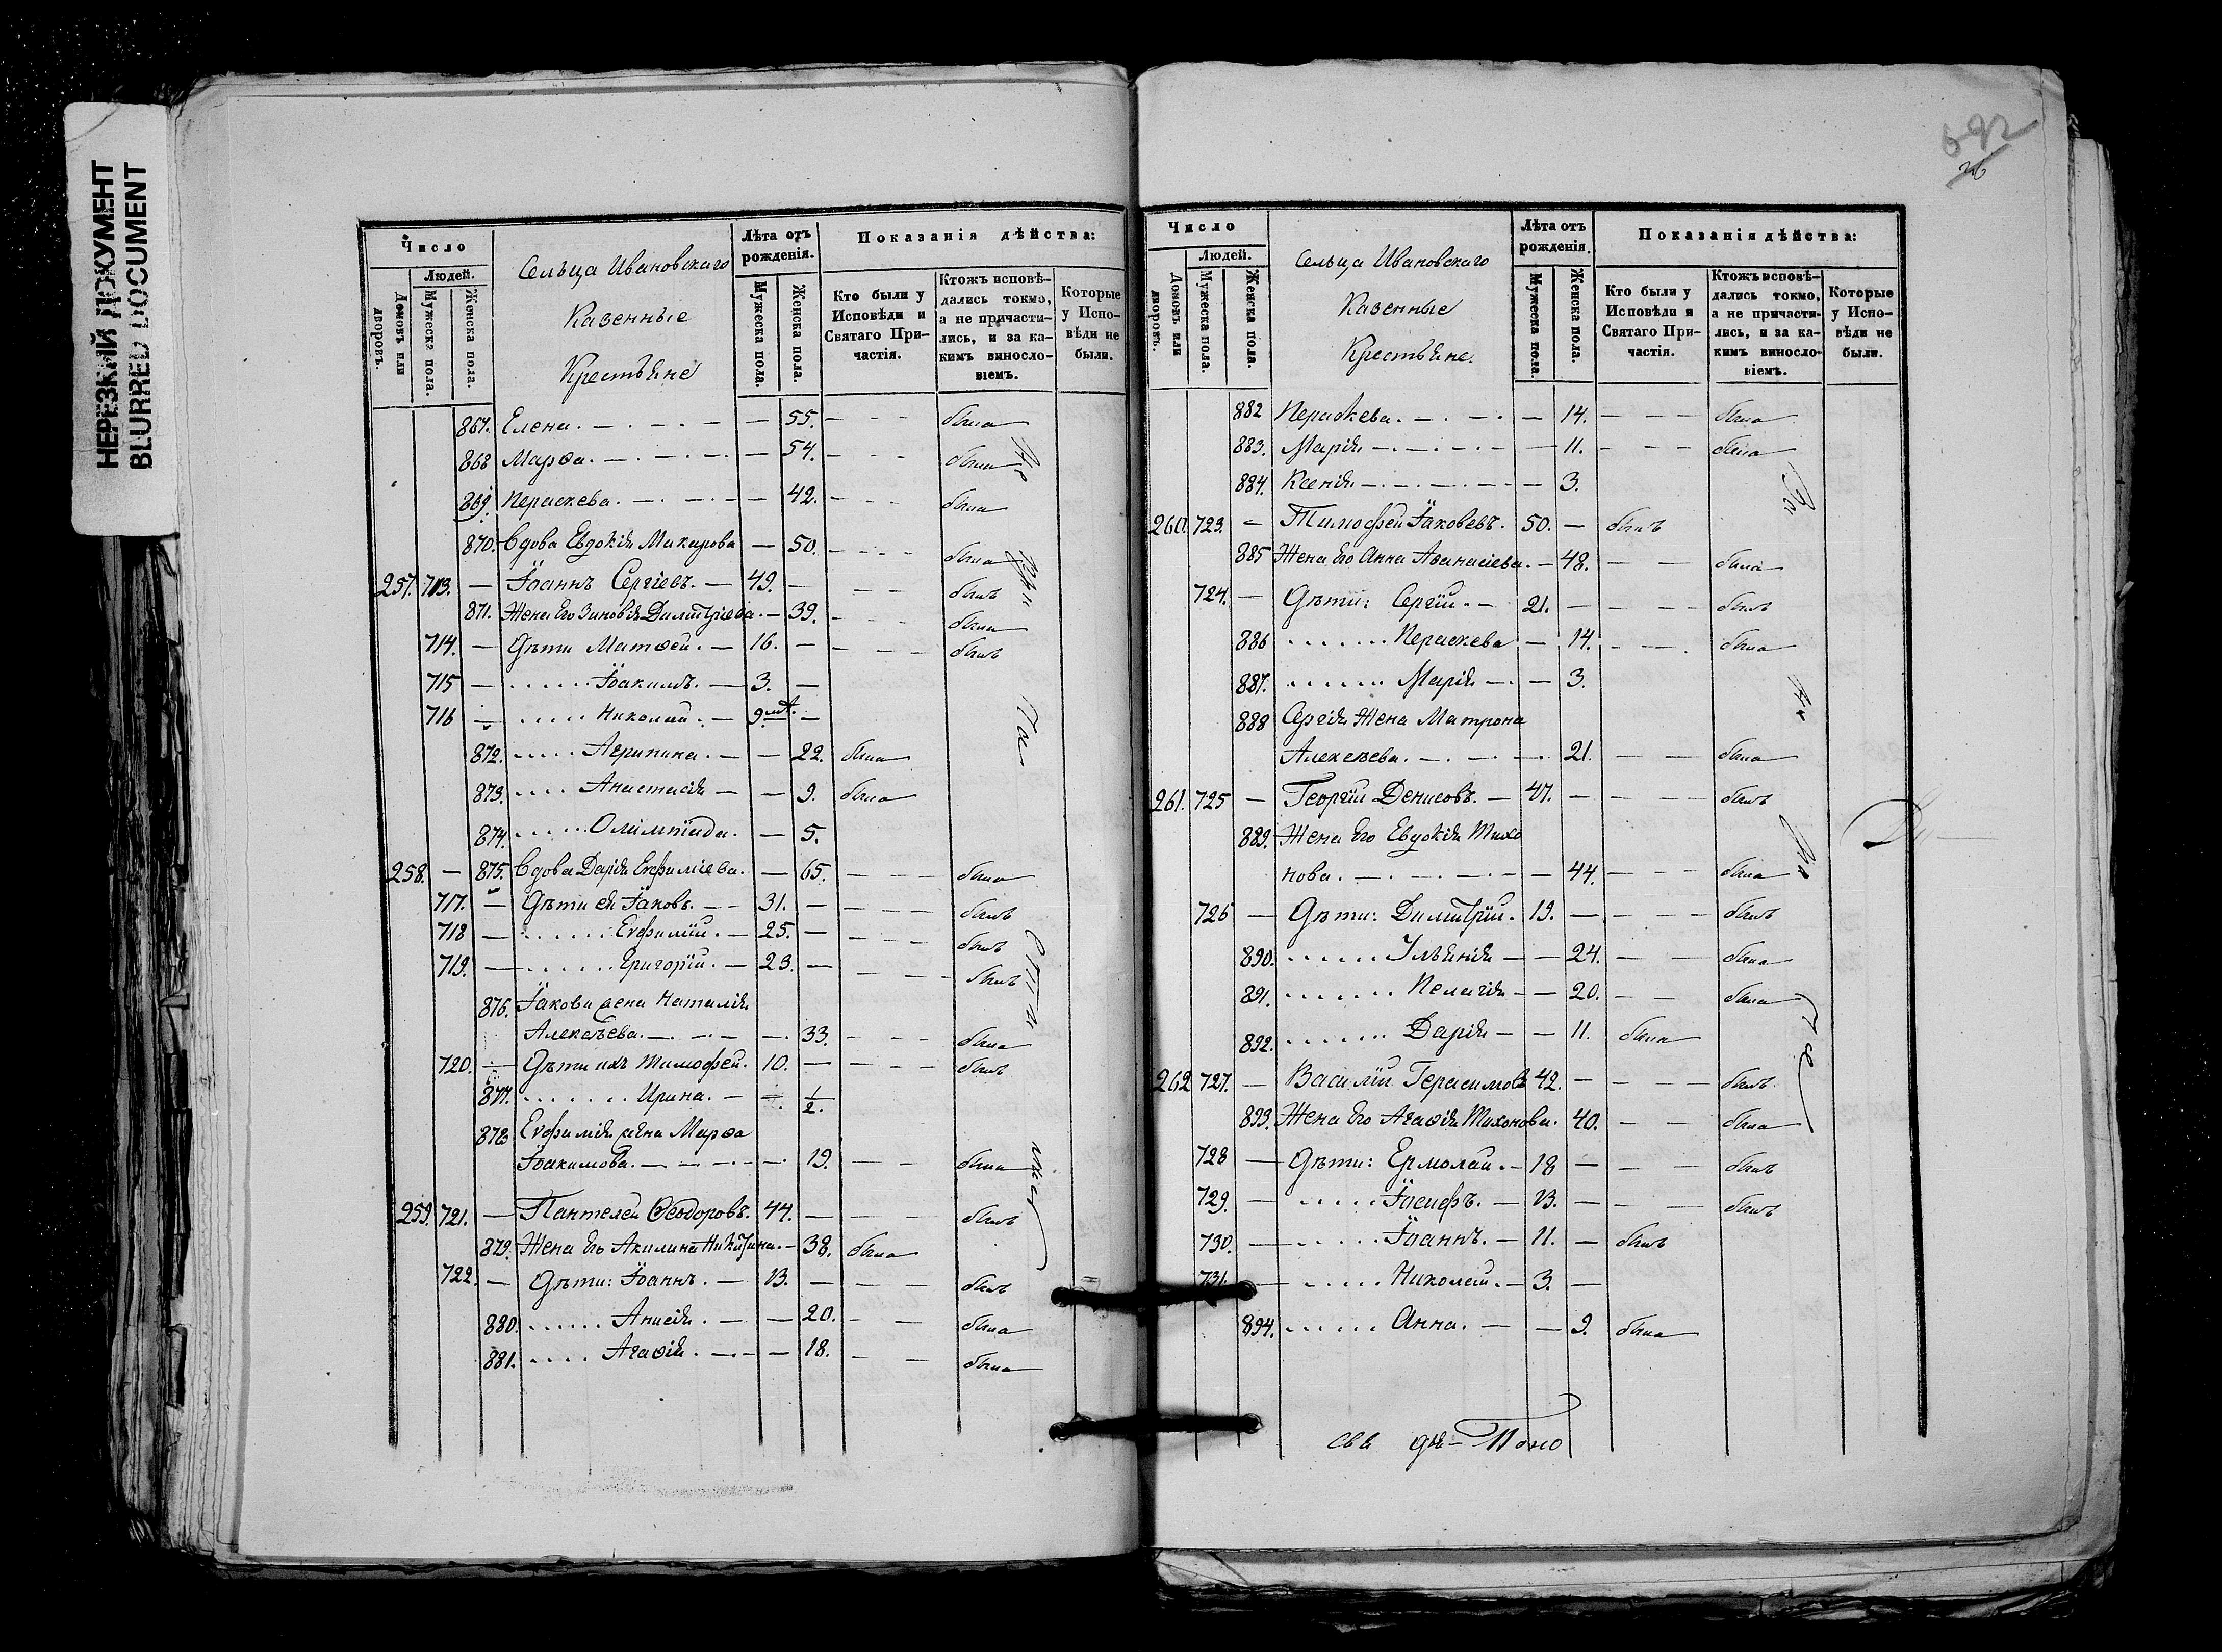 НЕРЕЗКИЙ ДОКУМЕНТ
BLURRED DOCUMENT
Число
Людей.
Домовъ или дворовъ.
Мужеска пола.
Женска пола.
Сельца Ивановскаго
Казенные
Крестьяне
Лѣта отъ рожденія.
Мужеска пола.
Женска пола.
Показанія дѣйства:
Кто были у Исповѣди и Святаго Причастія.
Ктожъ исповѣдались токмо, а не причастились, и за какимъ винословіемъ.
Которые у Исповѣди не были.
867. Елена. — 55. была
868 Марѳа. — 54. была
869. Параскева. — 42. была
870. Вдова Евдокія Макарова — 50. была
257. 713. — Іоаннъ Сергіевъ. — 49. — былъ
871. Жена Его Зиновія Димитріева. — 39. была
714. — Дѣти Матѳей. — 16. — былъ
715 — Іоакимъ. — 3. —
716 — Николай. — 9 мѣ. —
872. Агрипина. — 22. была
873. Анастасія — 9. была
874. Олимпіада. — 5.
258. — 875. Вдова Дарія Евфиміева. — 65. была
717. — Дѣти ея Іаковъ. — 31. — былъ
718 — Евфимій. — 25. — былъ
719. — Григорій. — 23. — былъ
876. Іакова жена Наталія
Алексѣева. — 33. была
720. — Дѣти ихъ Тимофей. 10. — былъ
877. Ирина. — 1/2.
878 Евфимія жена Марѳа
Іоакимова. — 19. была
259. 721. — Пантелей Ѳеодоровъ. 44. — былъ
879. Жена Его Акилина Никитина. — 38. была
722. — Дѣти: Іоаннъ. — 13. — былъ
880. Анисія. — 20. была
881. Агаѳія. — 18. была
692
26
Число
Людей.
Домовъ или дворовъ.
Мужеска пола.
Женска пола.
Сельца Ивановскаго
Казенные
Крестьяне.
Лѣта отъ рожденія.
Мужеска пола.
Женска пола.
Показанія дѣйства:
Кто были у Исповѣди и Святаго Причастія.
Ктожъ исповѣдались токмо, а не причастились, и за какимъ винословіемъ.
Которые у Исповѣди не были.
882 Параскева. — 14. была
883. Марія — 11. была
884. Ксенія — 3.
260. 723. — Тимофей Іаковевъ. 50. — былъ
885 Жена Его Анна Аѳанасіева. — 48. была
724. — Дѣти: Сергій. — 21. — былъ
886 Параскева — 14. была
887. Марія — 3.
888 Сергія Жена Матрона
Алексѣева. — 21. была
261. 725 — Георгій Денисовъ. — 47. — былъ
889. Жена Его Евдокія Тихо
нова. — 44. была
726 — Дѣти: Димитрій. 19. — былъ
890. Уліянія — 24. была
891. Пелагія — 20. была
892. Дарія — 11. была
262 727. — Василій Герасимовъ 42. — былъ
893. Жена Его Агаѳія Тихонова. 40. была
728 — Дѣти: Ермолай. — 18 — былъ
729. — Іосифъ. — 13. — былъ
730. — Іоаннъ. — 11. — былъ
731. — Николай. — 3. —
894. Анна. — 9. была